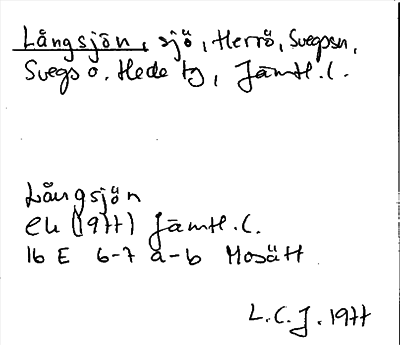 Långsjön, sjö, Herrö, Svegs sn,
Svegs o. Hede tg, Jämtl. l.
Långsjön
ek (1977) Jämtl. l.
16 E 6-7 a-b Mosätt
L.C.J. 1977